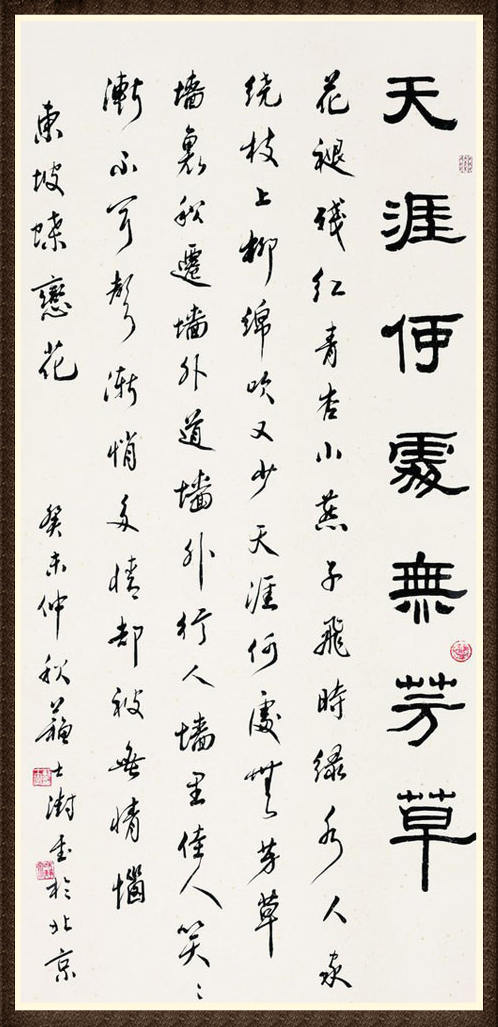 天涯何處無芳草
花褪殘红青杏小燕子飛時绿水人家
绕枝上柳綿吹又少天涯何處無芳草
墻裏秋遷墻外道墻外行人墻里佳人笑〻
漸不闻聲漸悄多情却被無情惱
東坡蝶戀花 癸未仲秋蘇士澍書於北京